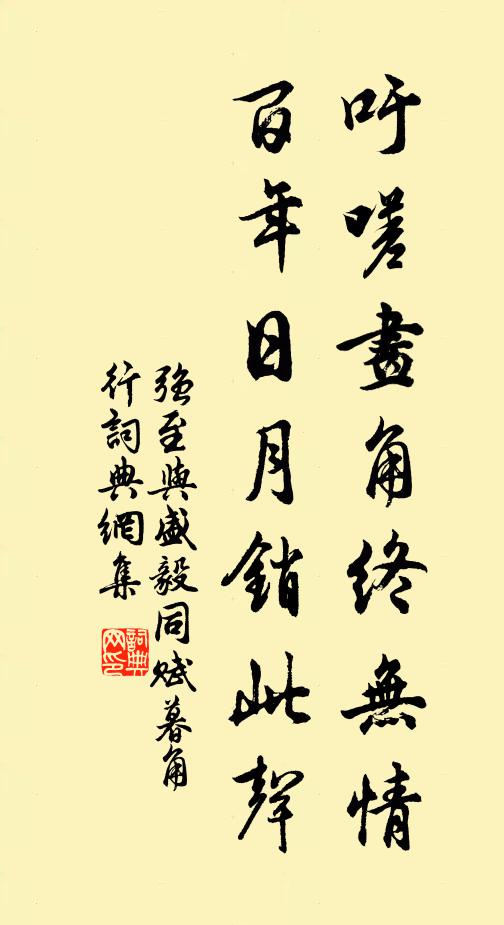 吁嗟畫角終無情
百年日月銷此聲
強至與盛毅同賦暮角
行詞典網集
詞典网印